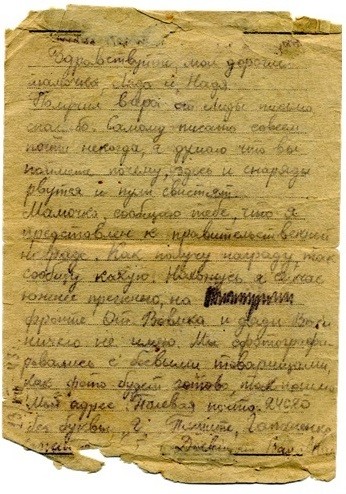 Здравствуйте, мои дорогие
мамочка, Лида и Надя.
Получил вчера от Лиды письмо
спасибо. Самому писать совсем
почти некогда, я думаю что вы
поймете почему, здесь и снаряды
рвутся и пули свистят.
Мамочка, сообщаю тебе, что я
представлен к правительственной
награде. Как получу награду, так
сообщу какую. Нахожусь я сейчас
южнее прежнего, на
фронте. От Вовика и дяди Вани
ничего не имею. Мы сфотографи-
ровались с боевыми товарищами,
как фото будет готово, так пошлю
Мой адрес: Полевая почта
без буквы. Пишите,